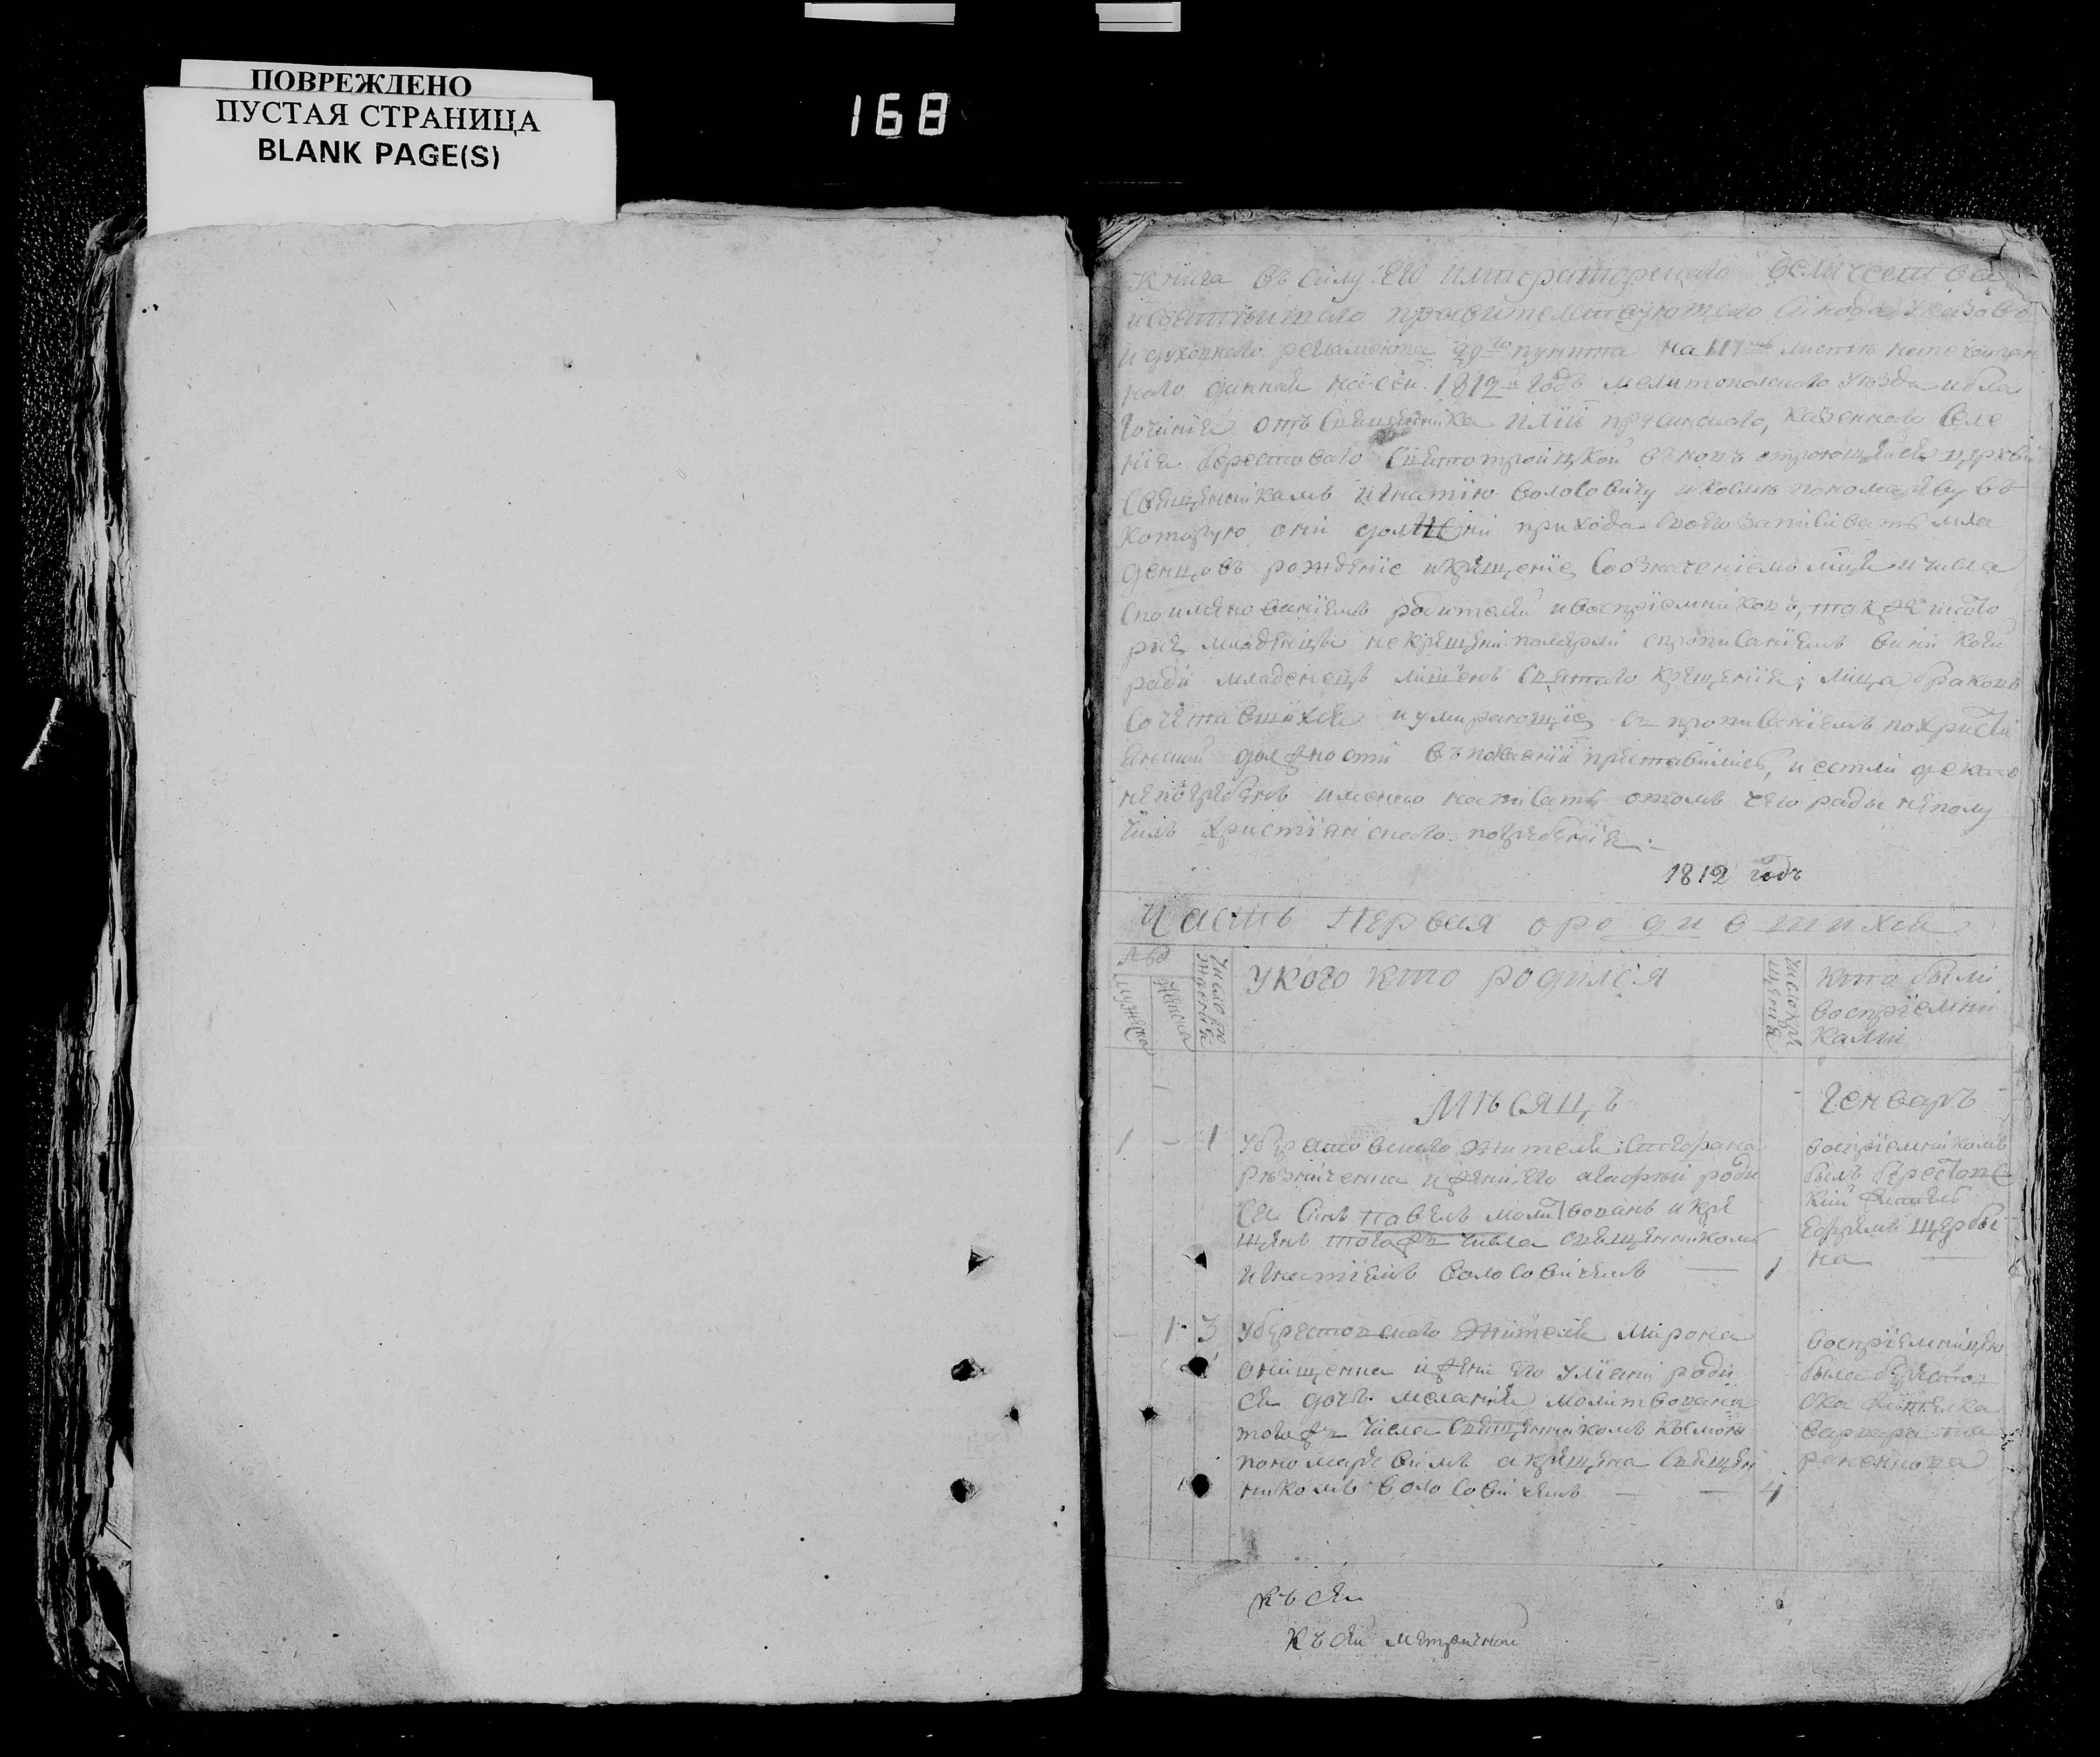 ПОВРЕЖДЕНО
ПУСТАЯ СТРАНИЦА
BLANK PAGE(S)
168
Книга въ силу Его императорскаго величества
и святѣйшаго правителствующаго Сінода указовъ
и духовнаго регламента пункта на листѣ напечатан
наго данная на сей 1812й годъ мелитополскаго уѣзда и бла
гочинія отъ Священника Иліи казеннаго Селе
нія берестоваго Святотроицкой вновь строющейся церкви
Священникамъ Игнатію Волосовичу и
которую они должни прихода своего записивать мла
денцовъ рожденіе и крещеніе Со означеніемъ мѣсяца и числа
Споимянованіемъ родителей и воспріемниковъ, также и кото
рие младенци некрещени померли спрописаніемъ вини коей
ради младенецъ лишенъ Святаго крещенія; лица бракомъ
Сочетавшихся и умирающие съ прописаніемъ по христи
анской должности въ покаеніи преставились, и естли де кто
непогребенъ имянно написать о томъ чего ради неполу
чилъ христіянскаго погребенія.
1812 годъ
Часть Первая о родившихся
Мужеска
Женска
Число рождения
У кого кто родился
Число крещения
Кто были
воспріемни
ками
Мѣсяцъ
Генварь
1 - 1
У берестовскаго жителя Стефана
Рѣзниченка и жени его агафіи роди
ся Синъ павелъ молитвованъ и кре
щенъ тогожъ числа Священникомъ
Игнатіемъ Волосовичемъ 1
воспріемникомъ
былъ берестовс
кий житель
Ефремъ Щерби
на
- 1 3
У берестовскаго жителя Мирона
онищенка и жени его Уліани роди
ся дочь меланія молитвована
тогожъ числа Священникомъ
пономаревимъ а крещена Священ
никомъ Волосовичемъ 4
воспріемницею
была берестов
ска жителка
варвара
Къ сей
Къ сей метричной